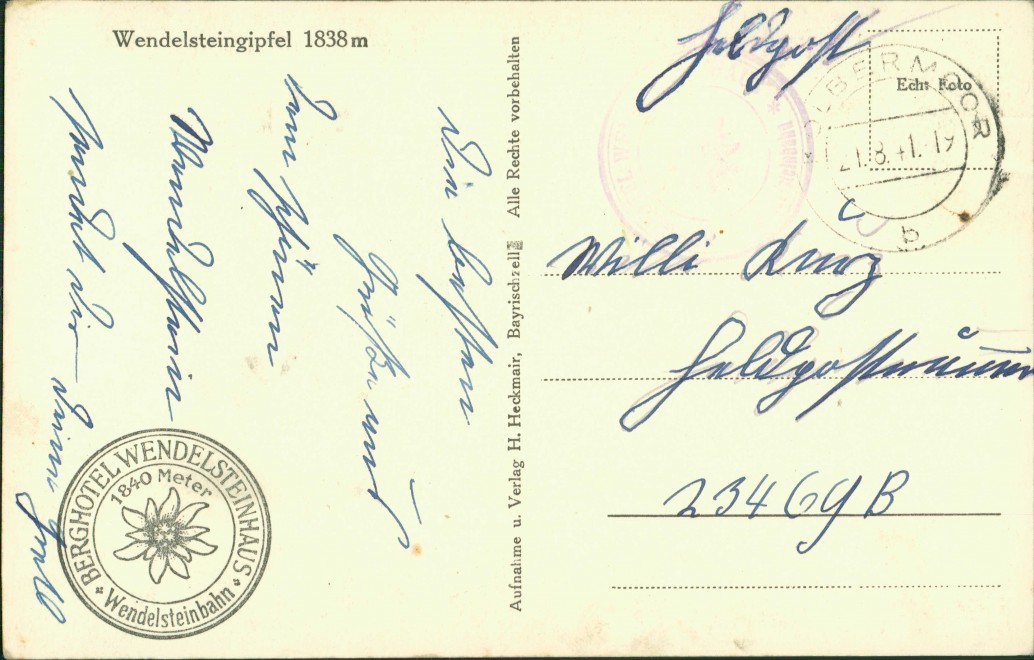 Wendelsteingipfel 1838 m
Die besten
Grüße und
vom schönen
Wendelstein
sendet Dir
Deine Gretl
BERGHOTEL WENDELSTEINHAUS
1840 Meter
Wendelsteinbahn
Aufnahme u. Verlag H. Heckmair, Bayrischzell Alle Rechte vorbehalten
Feldpost
Echt Foto
KOLBERMOOR
21.8.41.-19
b
Willi Kurz
Feldpostnumm
23469 B